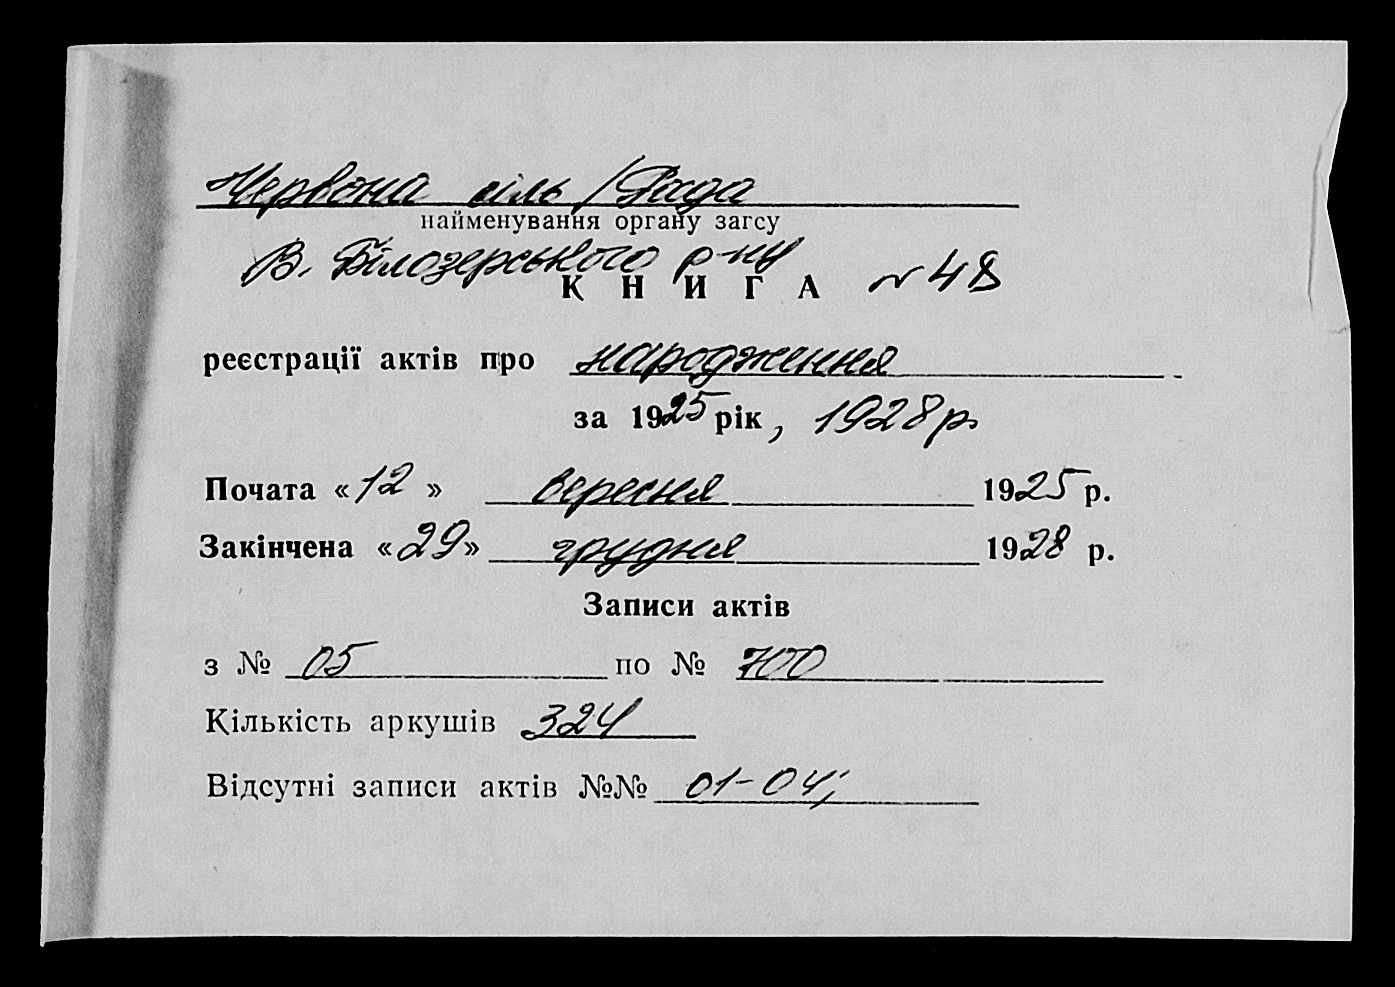 Червона сіль/Рада
найменування органу загсу
В. Білозерського р-ну
КНИГА N 48
реєстрації актів про народження
за 1925 рік, 1928 р.
Почата «12» вересня 1925 р.
Закінчена «29» грудня 1928 р.
Записи актів
з № 05 по № 700
Кількість аркушів 324
Відсутні записи актів №№ 01-04;